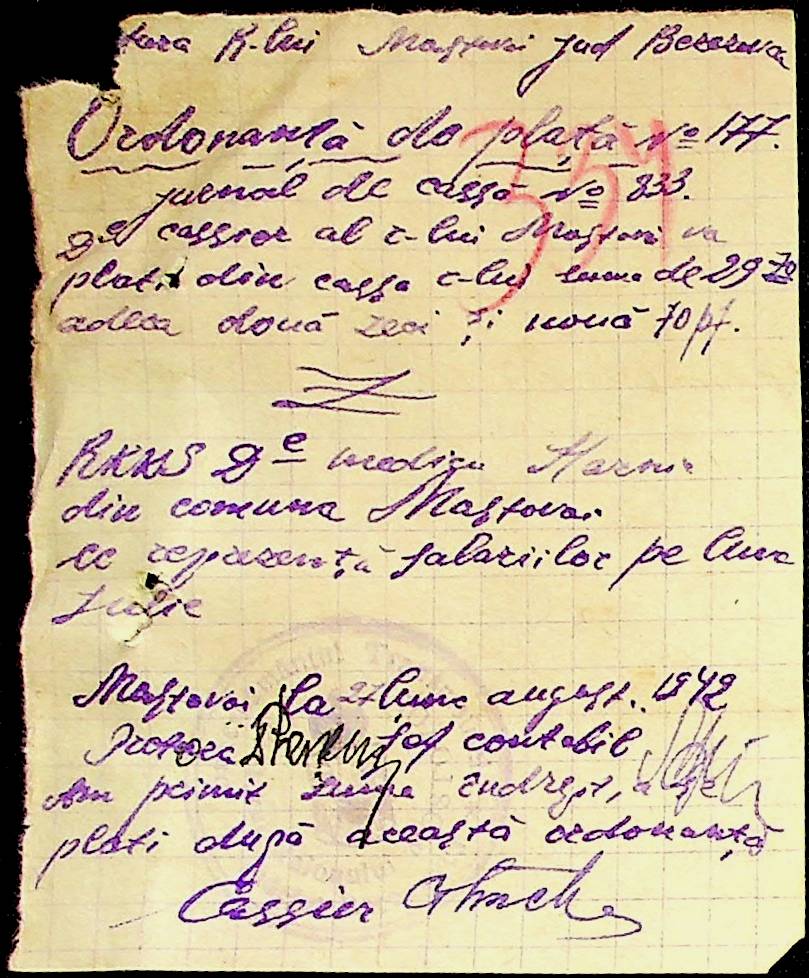 R-lui Mastovoi jud Berezovca
Ordonanță de plată № 177.
jurnal de cassă № 833.
De cassier al c-lui Mastovoi va
plati din cassa c-lui suma de 29 70
adeca două zeci și nouă 70 pf.
De medicu
din comuna Mastovoi
ce reprezentă salariilor pe luna
Iulie
Mastovoi la 27 luna august. 1942
șef contabil
Am primit suma
plati după această ordonanță
Cassier
351